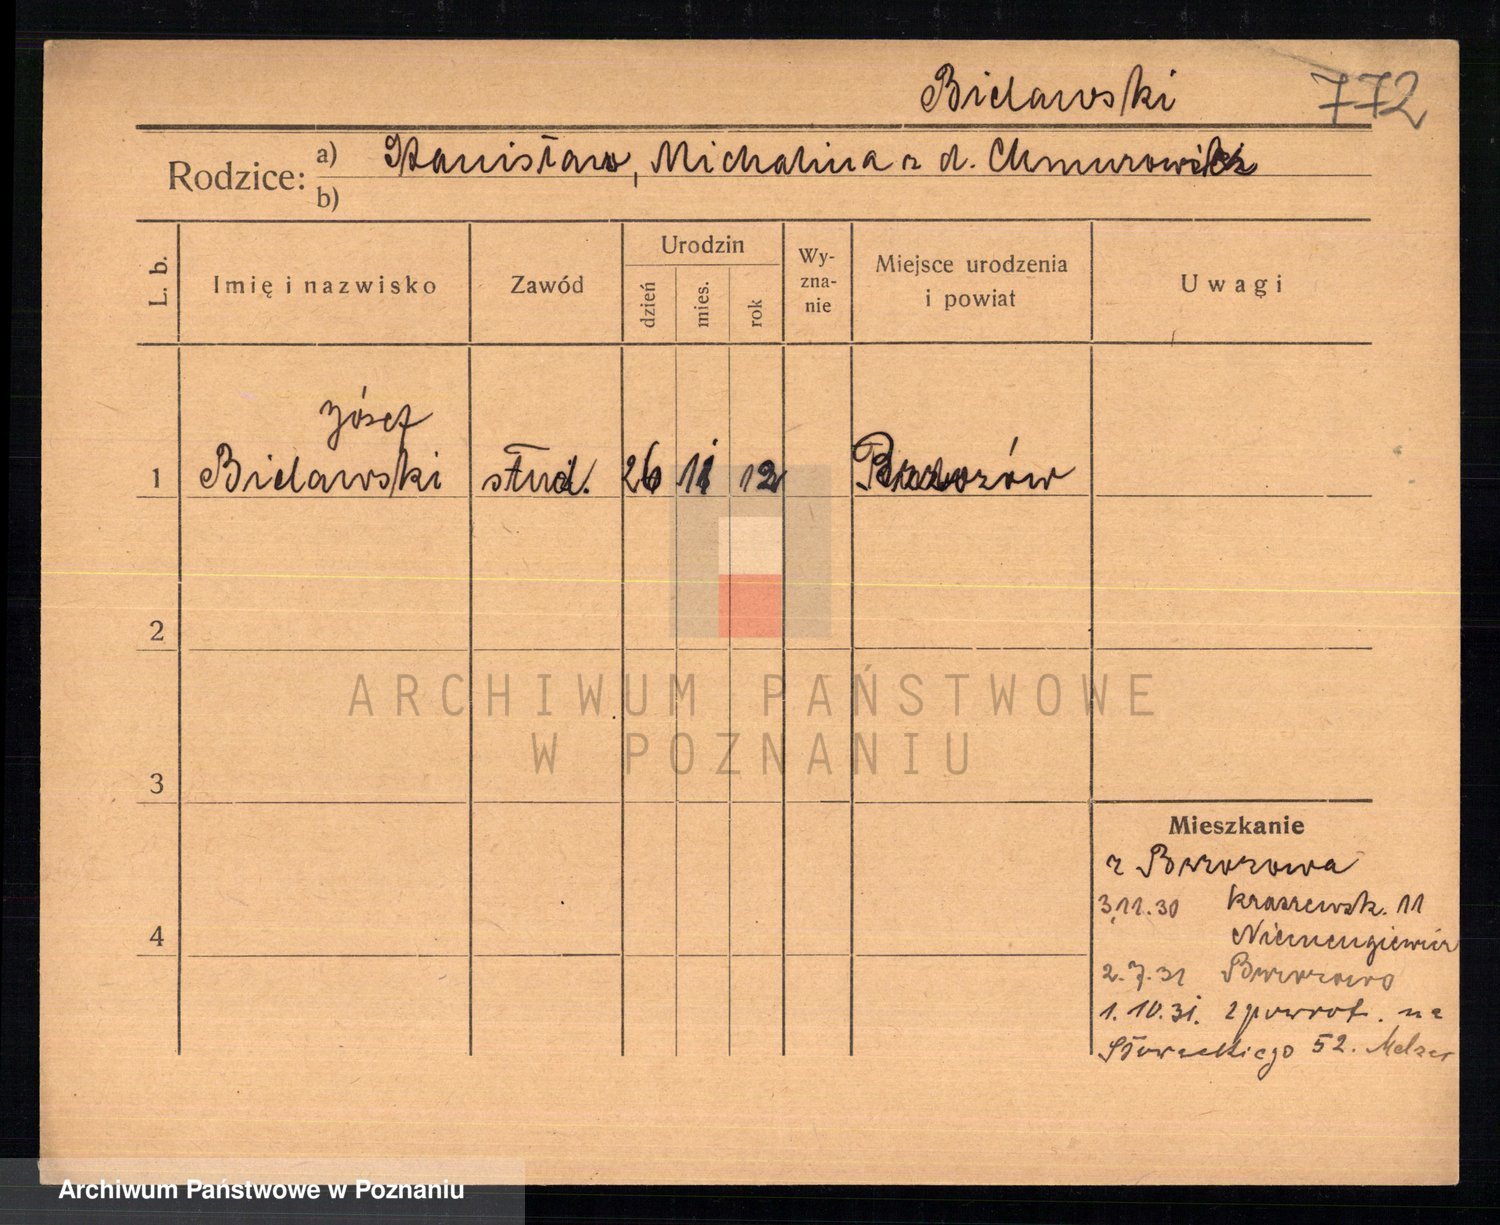 Bielawski 772
Rodzice: a) Stanisław, Michalina z d. Chmurowicz
b)
L. b.
Imię i nazwisko
Zawód
Urodzin
dzień
mies.
rok
Wy-
zna-
nie
Miejsce urodzenia
i powiat
Uwagi
Józef
1 Bielawski stud. 26 11 12 Brzozów
2
ARCHIWUM PAŃSTWOWE
W POZNANIU
3
Mieszkanie
z Brzozowa
3.11.30 Kraszewsk. 11
4
2.7.31 Brzozowo
1.10.31. z powrot. na
Słowackiego 52. Melzer
Archiwum Państwowe w Poznaniu